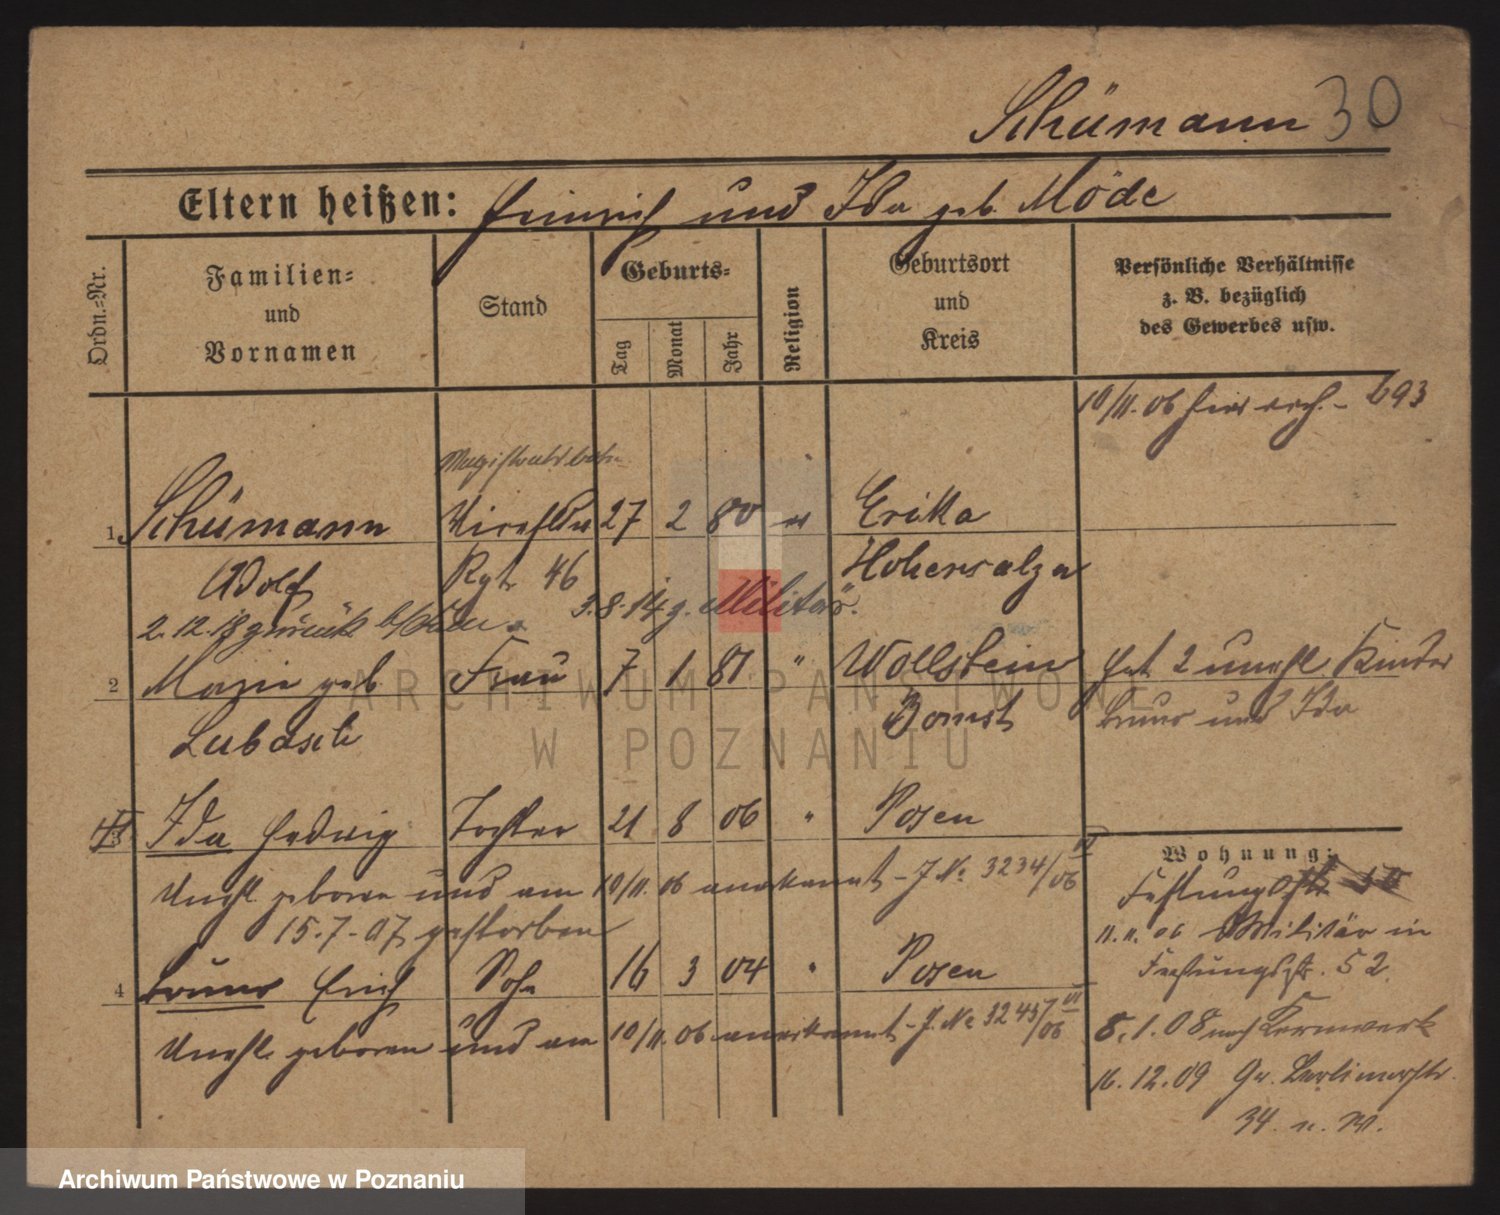 Schümann 30
Eltern heißen: Heinrich und Ida geb. Möde
Ordn.-Nr.
Familien-
und
Vornamen
Stand
Geburts-
Tag
Monat
Jahr
Religion
Geburtsort
und
Kreis
Persönliche Verhältnisse
z. B. bezüglich
des Gewerbes usw.
10/11. 06 hier 693
1 Schümann 27 2 80 Erika
Adolf Rgt. 46 Hohensalza
3.8.14 z. Militär.
2.12.18 zurück
2 Marie geb Frau 7 1 81 " Wollstein hat 2 unehl. Kinder
Lubasch Bomst Bruno und Ida
3 Ida Hedwig Tochter 21 8 06 " Posen
Wohnung:
Unehl geboren und am 10/11. 06 anerkannt - J. No 3234/06 VI
15.7.07 gestorben
Festungsstr.
11.11.06 Militär in
Festungsstr. 52.
4 Bruno Erich Sohn 16 3 04 " Posen
Unehl. geboren und am 10/11. 06 anerkannt - J. No 3243/06 VI
8.1.08 nach Kernwerk
16.12.09 Gr. Berlinerstr.
34. n. W.
ARCHIWUM PAŃSTWOWE
W POZNANIU
Archiwum Państwowe w Poznaniu